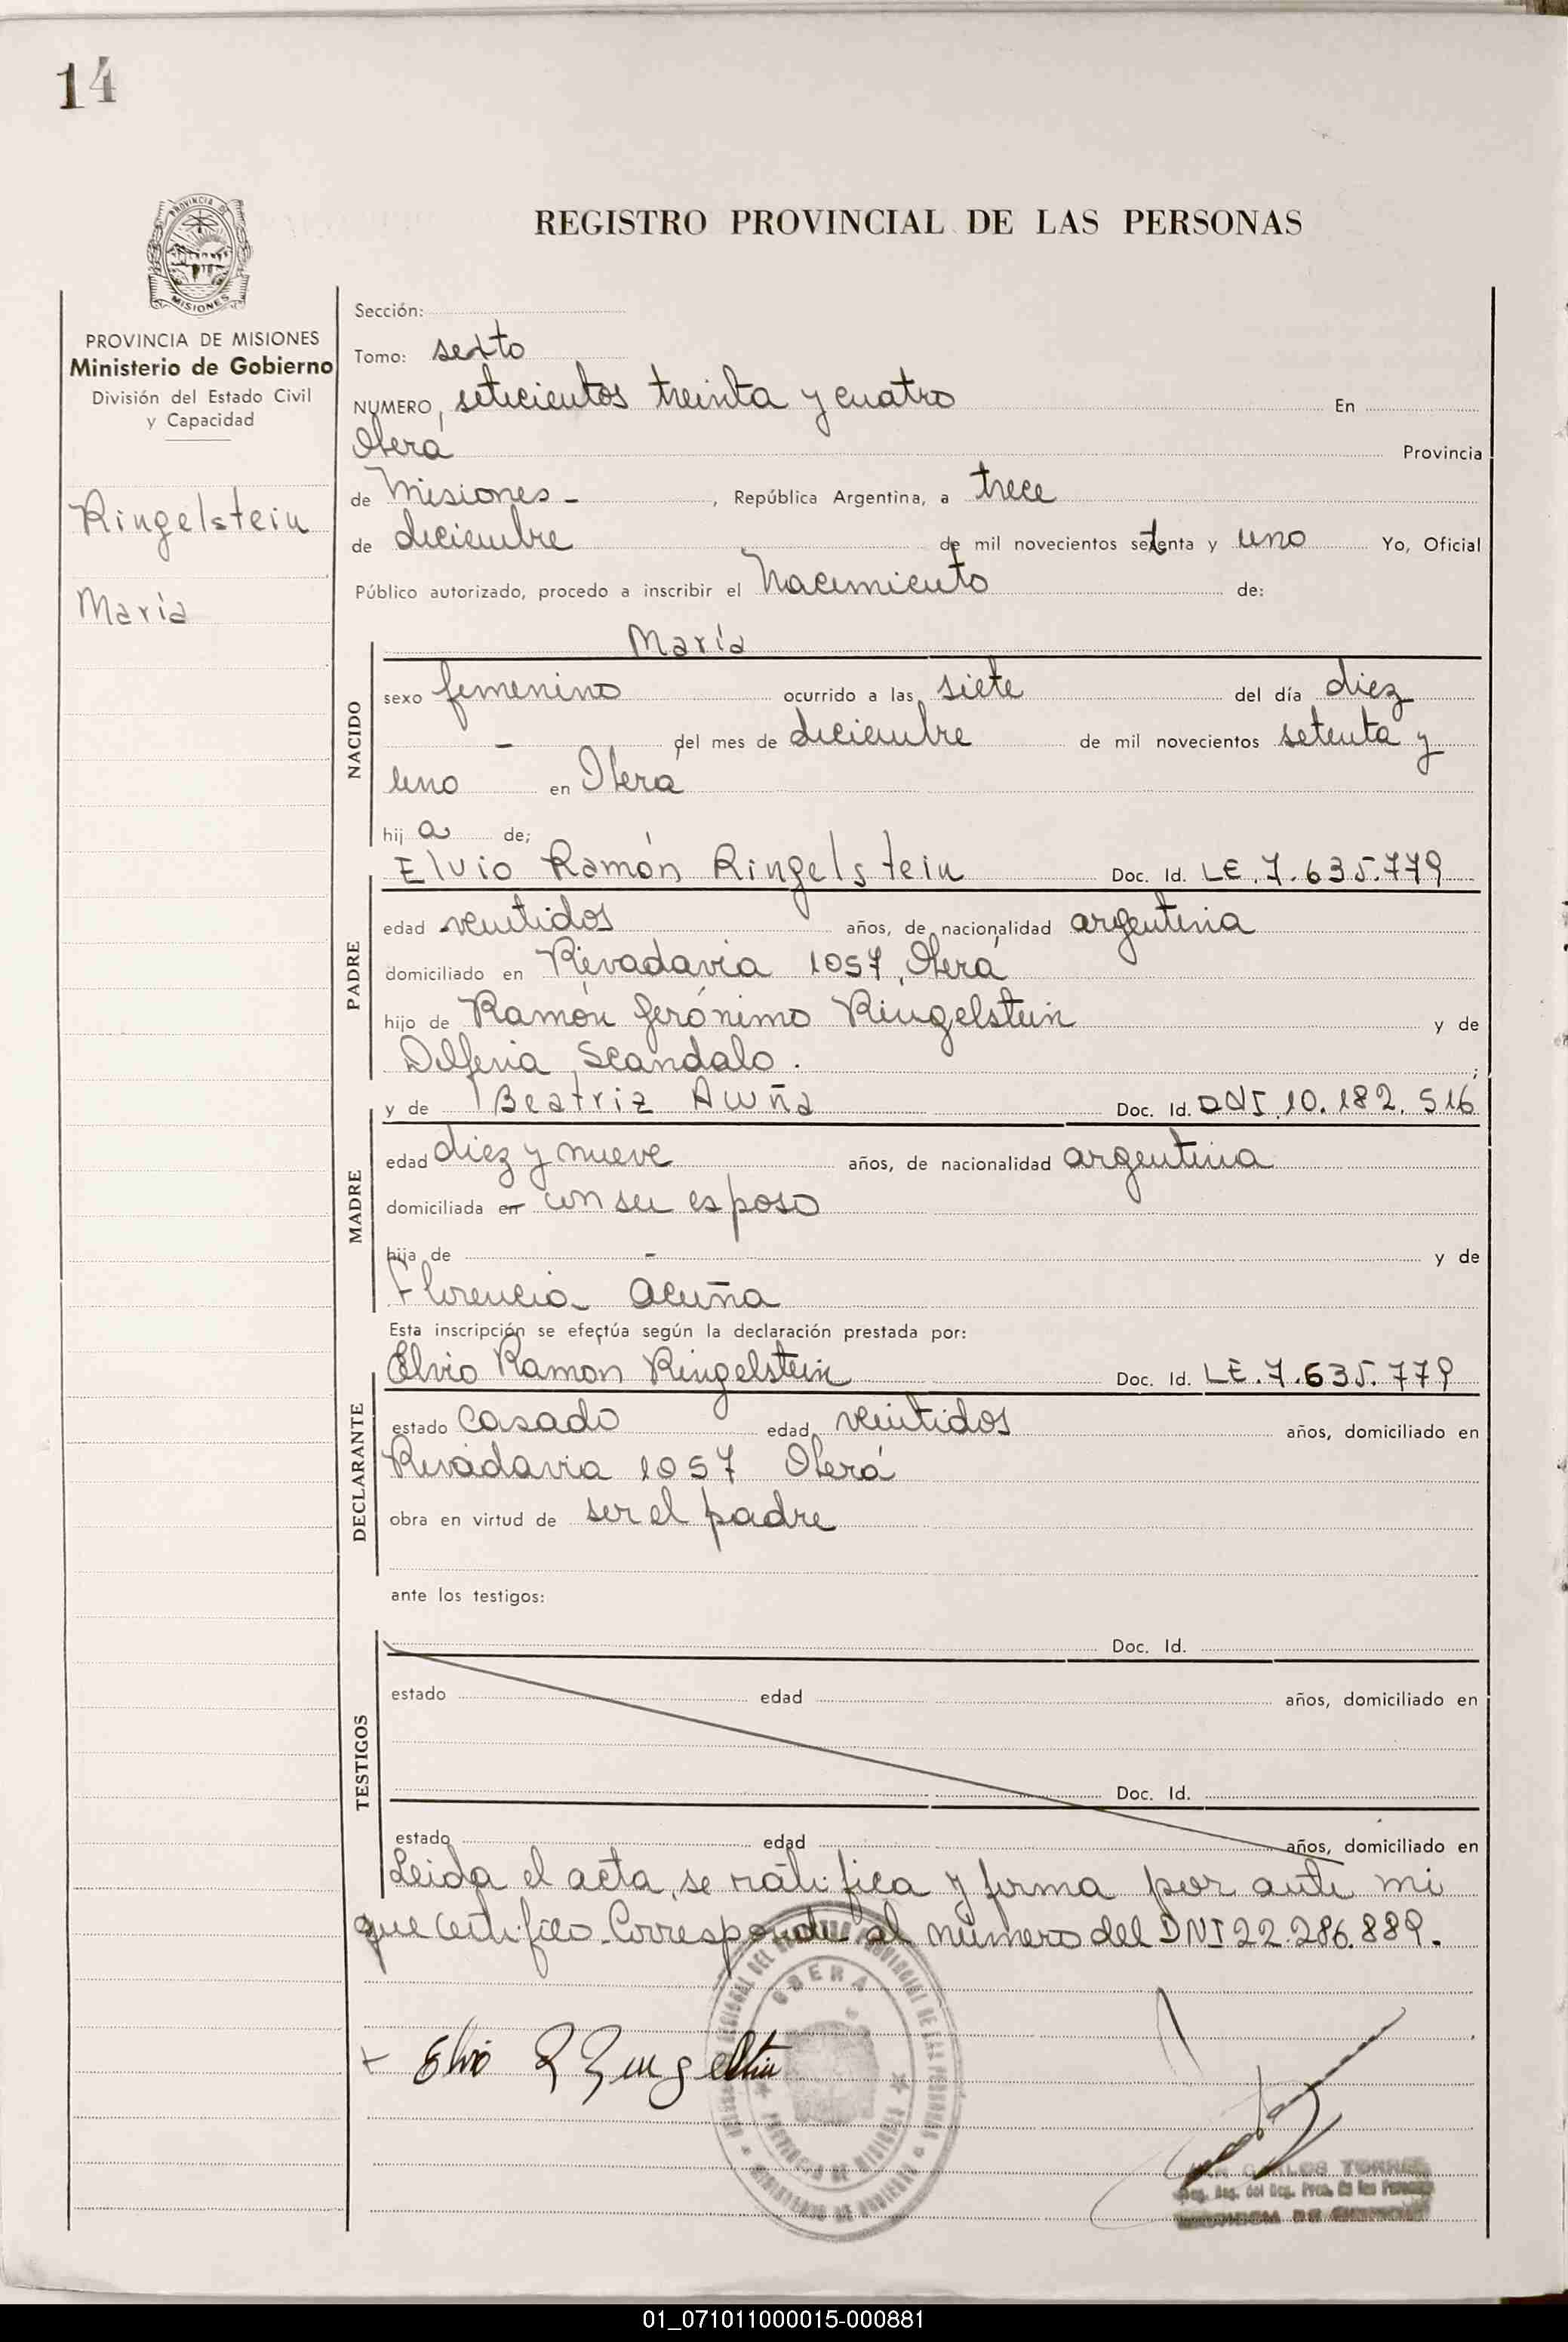 14
PROVINCIA DE
MISIONES
REGISTRO PROVINCIAL DE LAS PERSONAS
PROVINCIA DE MISIONES
Ministerio de Gobierno
División del Estado Civil
y Capacidad
Ringelstein
María
Sección:
Tomo: sexto
NUMERO, setecientos treinta y cuatro En
Oberá Provincia
de Misiones - , República Argentina, a trece
de diciembre de mil novecientos setenta y uno Yo, Oficial
Público autorizado, procedo a inscribir el Nacimiento de:
María
NACIDO
sexo femenino ocurrido a las siete del día diez
- del mes de diciembre de mil novecientos setenta y
uno en Oberá
hij a de;
Elvio Ramón Ringelstein Doc. Id. LE. 7.635.779
PADRE
edad veintidos años, de nacionalidad argentina
domiciliado en Rivadavia 1057, Oberá
hijo de Ramón Gerónimo Ringelstein y de
Delfina Scandalo. ;
y de Beatriz Acuña Doc. Id. DNI. 10.182.516
MADRE
edad diez y nueve años, de nacionalidad argentina
domiciliada en con su esposo
hija de - y de
Florencia Acuña
Esta inscripción se efectúa según la declaración prestada por:
Elvio Ramon Ringelstein Doc. Id. LE. 7.635.779
DECLARANTE
estado casado edad veintidos años, domiciliado en
Rivadavia 1057 Oberá
obra en virtud de ser el padre
ante los testigos:
Doc. Id.
TESTIGOS
estado edad años, domiciliado en
Doc. Id.
estado edad años, domiciliado en
Leida el acta, se ratifica y firma por ante mi
que certifico. Corresponde al número del DNI 22.286.889.
OBERA
PROVINCIA DE MISIONES
MINISTERIO DE GOBIERNO
Elvio R Ringelstein
CARLOS TORRES
01_071011000015-000881